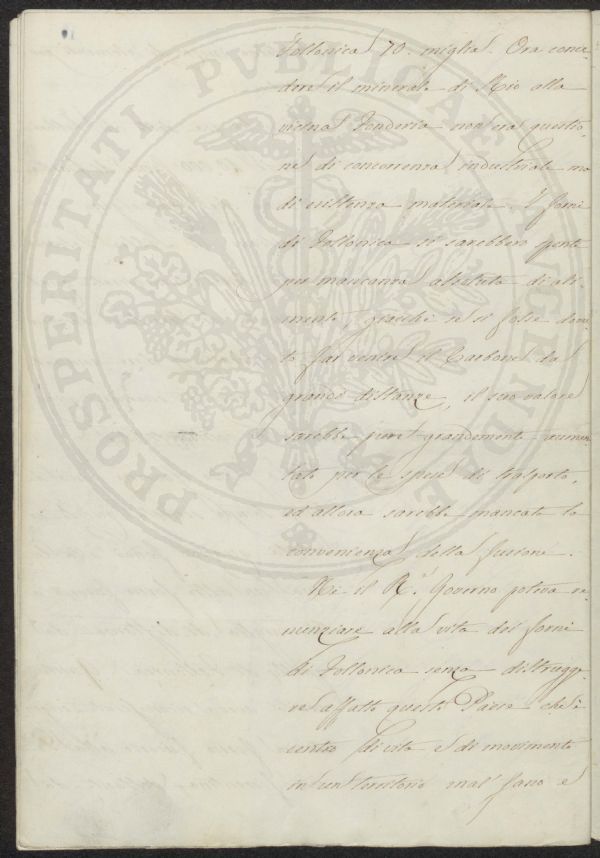 Follonica 70. miglia. Ora conce-
dere il minerale di Rio alla
vicina Fonderia non era questio-
ne di concorrenza industriale ma
di esistenza materiale. I forni
di Follonica si sarebbero spenti
per mancanza assoluta di ali-
mento, giacchè se si fosse dovu-
to far venire il Carbone da
grandi distanze, il suo valore
sarebbe pure grandemente aumen-
tato per le spese di trasporto,
ed allora sarebbe mancata la
convenienza della fusione.
Nè il R. Governo poteva re-
nunziare alla vita dei forni
di Follonica senza distrugge-
re affatto questo Paese che è
centro di vita e di movimento
in un territorio mal sano e
PROSPERITATI PUBLICAE AUGENDAE